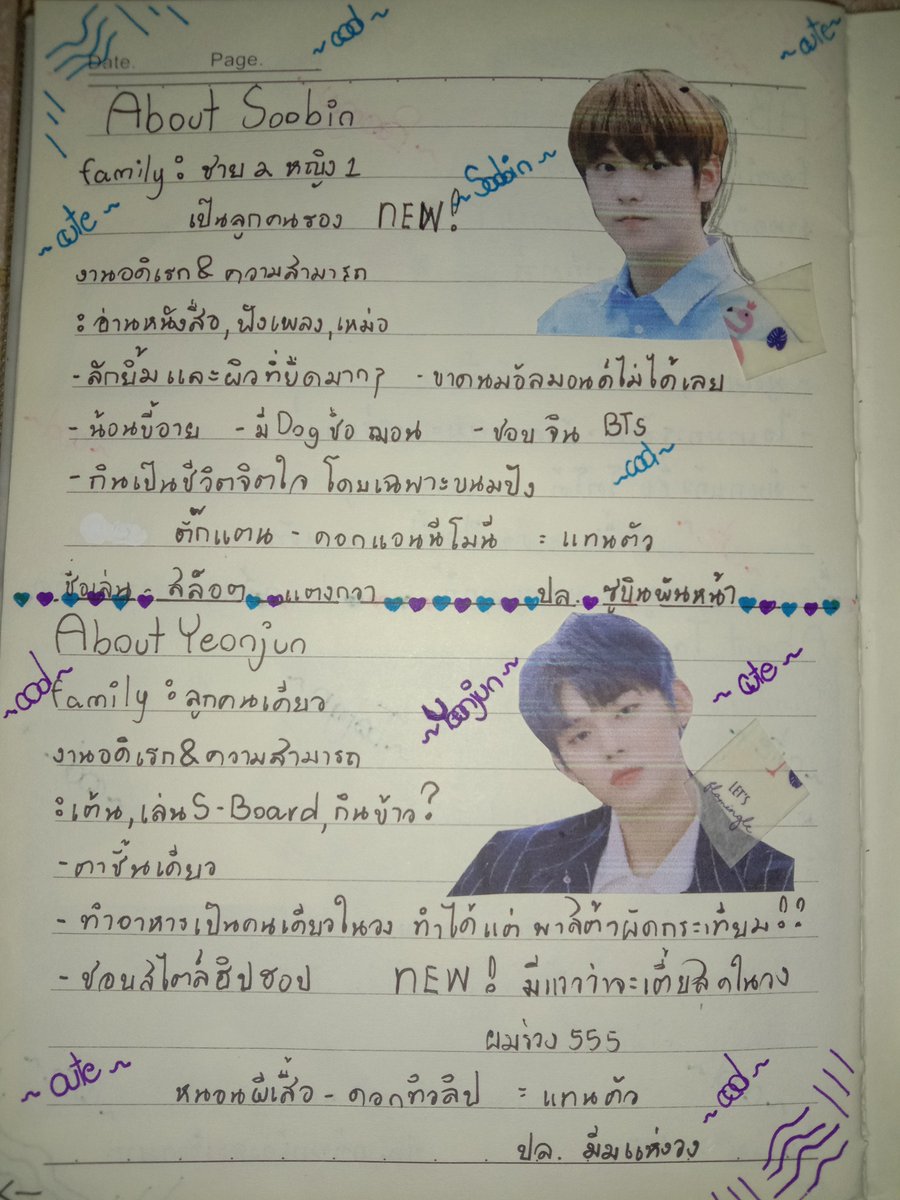 ~ cool ~
~ cute ~
Date. Page.
About Soobin
family : ชาย 2 หญิง 1
~ Soobin ~
~ cute ~
เป็นลูกคนรอง NEW!
งานอดิเรก & ความสามารถ
: อ่านหนังสือ, ฟังเพลง, เหม่อ
- ลักยิ้มและผิวที่ยืดมาก? - ขาดนมอัลมอนด์ไม่ได้เลย
- น้อนขี้อาย - มี Dog ชื่อ ฌอน - ชอบ จิน BTS
~ cool ~
- กินเป็นชีวิตจิตใจ โดยเฉพาะขนมปัง
ตั๊กแตน - ดอกแอนนีโมนี = แทนตัว
ชื่อเล่น - สล็อต แตงกวา ปล. ซูบินพันหน้า
About Yeonjun
~ cool ~
family : ลูกคนเดียว
~ Yeonjun ~
~ cute ~
งานอดิเรก & ความสามารถ
: เต้น, เล่น S-Board, กินข้าว?
LET'S
flamingle
- ตาชั้นเดียว
- ทำอาหารเป็นคนเดียวในวง ทำได้แต่ พาสต้าผัดกระเทียม!??
- ชอบสไตล์ฮิปฮอป NEW! มีแววว่าจะเตี้ยสุดในวง
ผมร่วง 555
~ cute ~
~ cool ~
หนอนผีเสื้อ - ดอกทิวลิป = แทนตัว
ปล. มีมแห่งวง